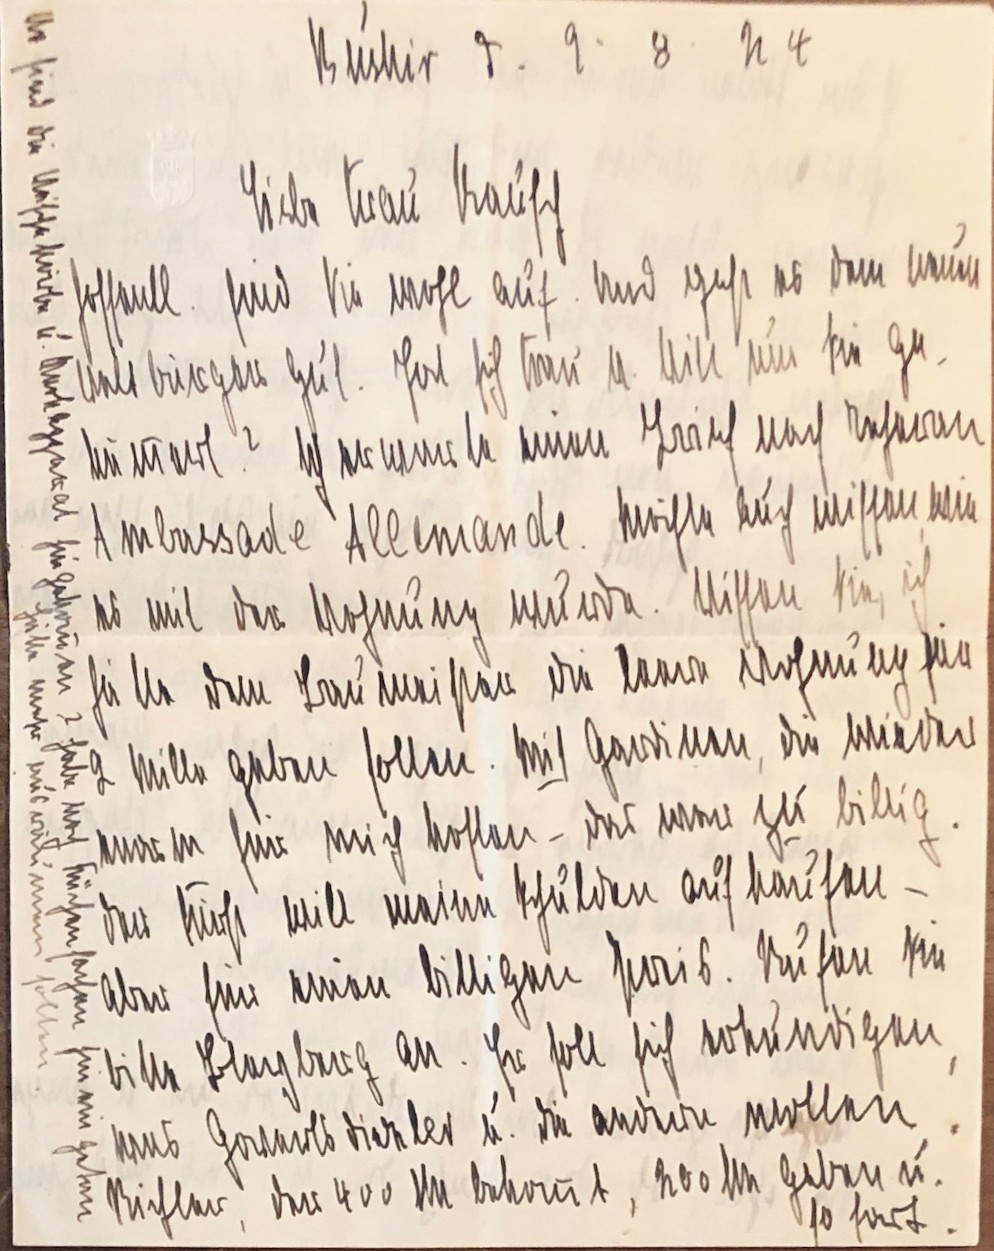 Bushir d. 9. 8. 24
Liebe Frau Rausch
hoffentl. sind Sie wohl auf. Und geht es dem neuen
gut. Hat sich Frau v. Will um Sie ge-
kümmert? Ich erwarte einen Brief nach Teheran
Ambassade Allemande. Möchte auch wissen wie
es mit der Wohnung wurde. Wissen Sie, ich
hätte dem Baumeister die leere Wohnung für
2 Mille geben sollen. Mit Gardinen, die wieder
neue für mich kosten – das war zu billig.
der Fürst will meine Schulden aufkaufen –
aber für einen billigen Preis. Rufen Sie
bitte an. Er soll sich erkundigen,
was u. die andern wollen.
Richter, der 400 M bekommt, 200 M geben u.
so fort.
sind die u.
? habe noch